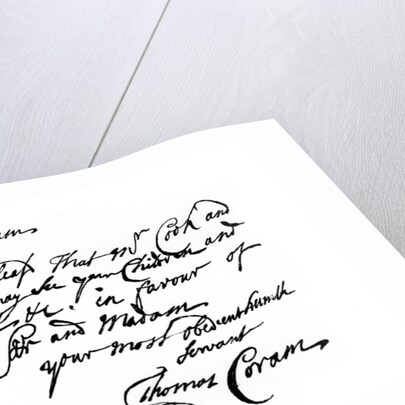 That Mr Cook and
may see your Children and
&c. in favour of
Sir and Madam
your most obedient humble
Servant
Thomas Coram